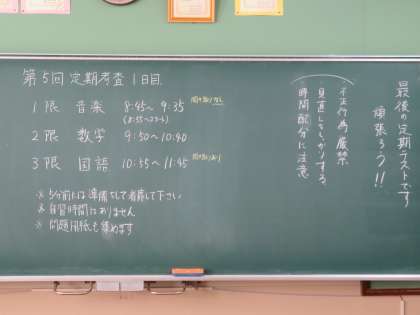 第5回 定期考査 1日目
1限 音楽 8:45〜9:35
2限 数学 9:50〜10:40
3限 国語 10:55〜11:45
※5分前には準備して着席して下さい
※自習時間はありません
※問題用紙も集めます
最後の定期テストです
頑張ろう!!
不正行為厳禁
見直しをしっかりする
時間配分に注意